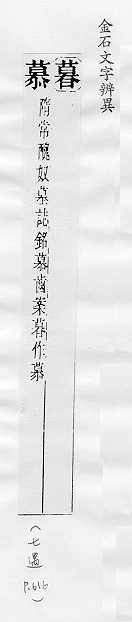 金石文字辨異
〔暮〕
慕 隋常醜奴墓誌銘慕齒案暮作慕
(七遇 P.616)